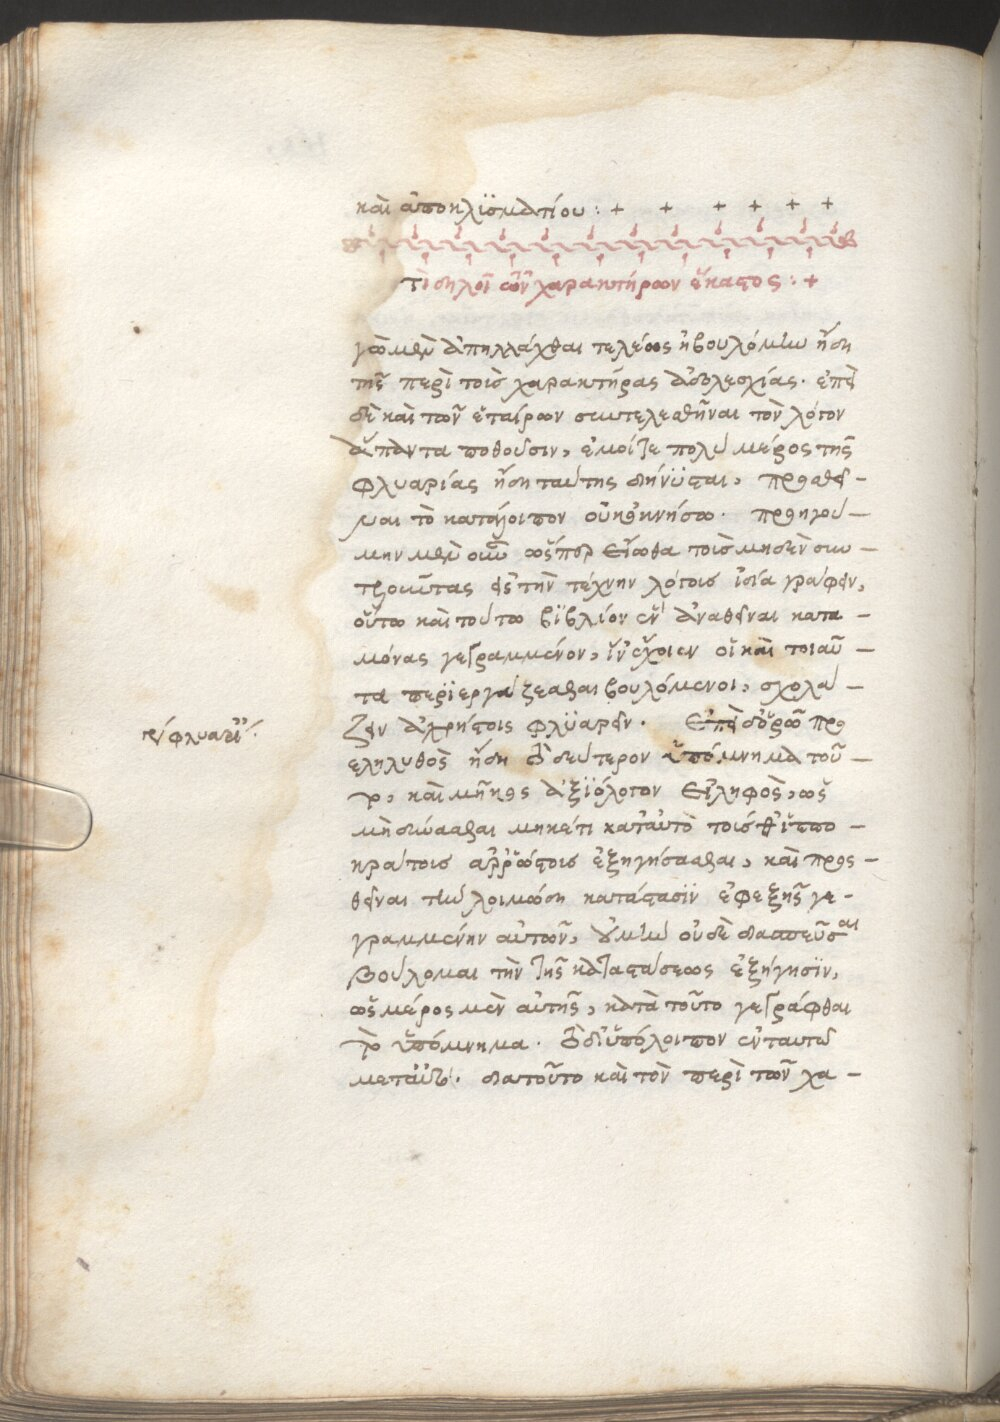 καὶ ἀποκλϊσματίου : + + + + + +
τί δηλοῖ τῶν χαρακτήρων ἕκαστος : +
γὼ μὲν ἀπηλλάχθαι τελέως ἠβουλόμην ἤδη
τῆς περὶ τοὺς χαρακτῆρας ἀδολεσχίας. ἐπεὶ
δὲ καὶ τῶν ἑταίρων συντελεσθῆναι τὸν λόγον
ἅπαντα ποθοῦσιν, ἐμοί τε πολὺ μέρος τῆς
φλυαρίας ἤδη ταύτης διήνϋσται, προσθεῖ-
ναι τὸ κατάλοιπον οὐκ ὀκνήσω. προηγού-
μην μὲν οὖν ὥσπερ εἴωθα τοῖς μηδὲν συν-
τελοῦντας εἰς τὴν τέχνην λόγοις ἰδία γράφειν,
οὕτω καὶ τούτω βϊβλίον ἓν ἀναθεῖναι κατα-
μόνας γεγραμμένον, ἵν' ἔχοιεν οἱ καὶ τοιαῦ-
τα περϊεργάζεσθαι βουλόμενοι, σχολά-
ζειν ἀχρήστοις φλϋαρεῖν. Ἐπεὶ δ' ὁρῶ προ
εληλυθὸς ἤδη τὸ δεύτερον ὑπόμνημα τοῦ-
το, καὶ μῆκος ἀξϊόλογον εἰληφὸς, ὡς
μὴ δύνασθαι μηκέτι κατ' αὐτὸ τοὺς θ' ἵππο-
κράτους ἀρρώστους ἐξηγήσασθαι, καὶ προσ-
θεῖναι τὴν λοιμώδη κατάστασϊν ἐφεξῆς γε-
γραμμένην αὐτῶν, οὐδὲ διασπεῦσαι
βούλομαι τὴν τῆς καταστάσεως ἐξήγησϊν,
ὡς μέρος μὲν αὐτῆς, κατὰ τοῦτο γεγράφθαι
τὸ ὑπόμνημα. τὸ δ' ὑπόλοιπον ἐν ταυτῶ
μετ' αὐτὸ. διατοῦτο καὶ τὸν περὶ τῶν χα-